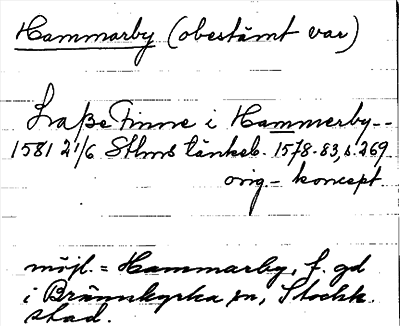 Hammarby (obestämt var)
Laße Finne i Hammerby--
1581 21/6 Sthms tänkeb. 1578-83, s. 269
orig-koncept
möjl. = Hammarby, f. gd
i Brännkyrka sn, Stockh.
stad.